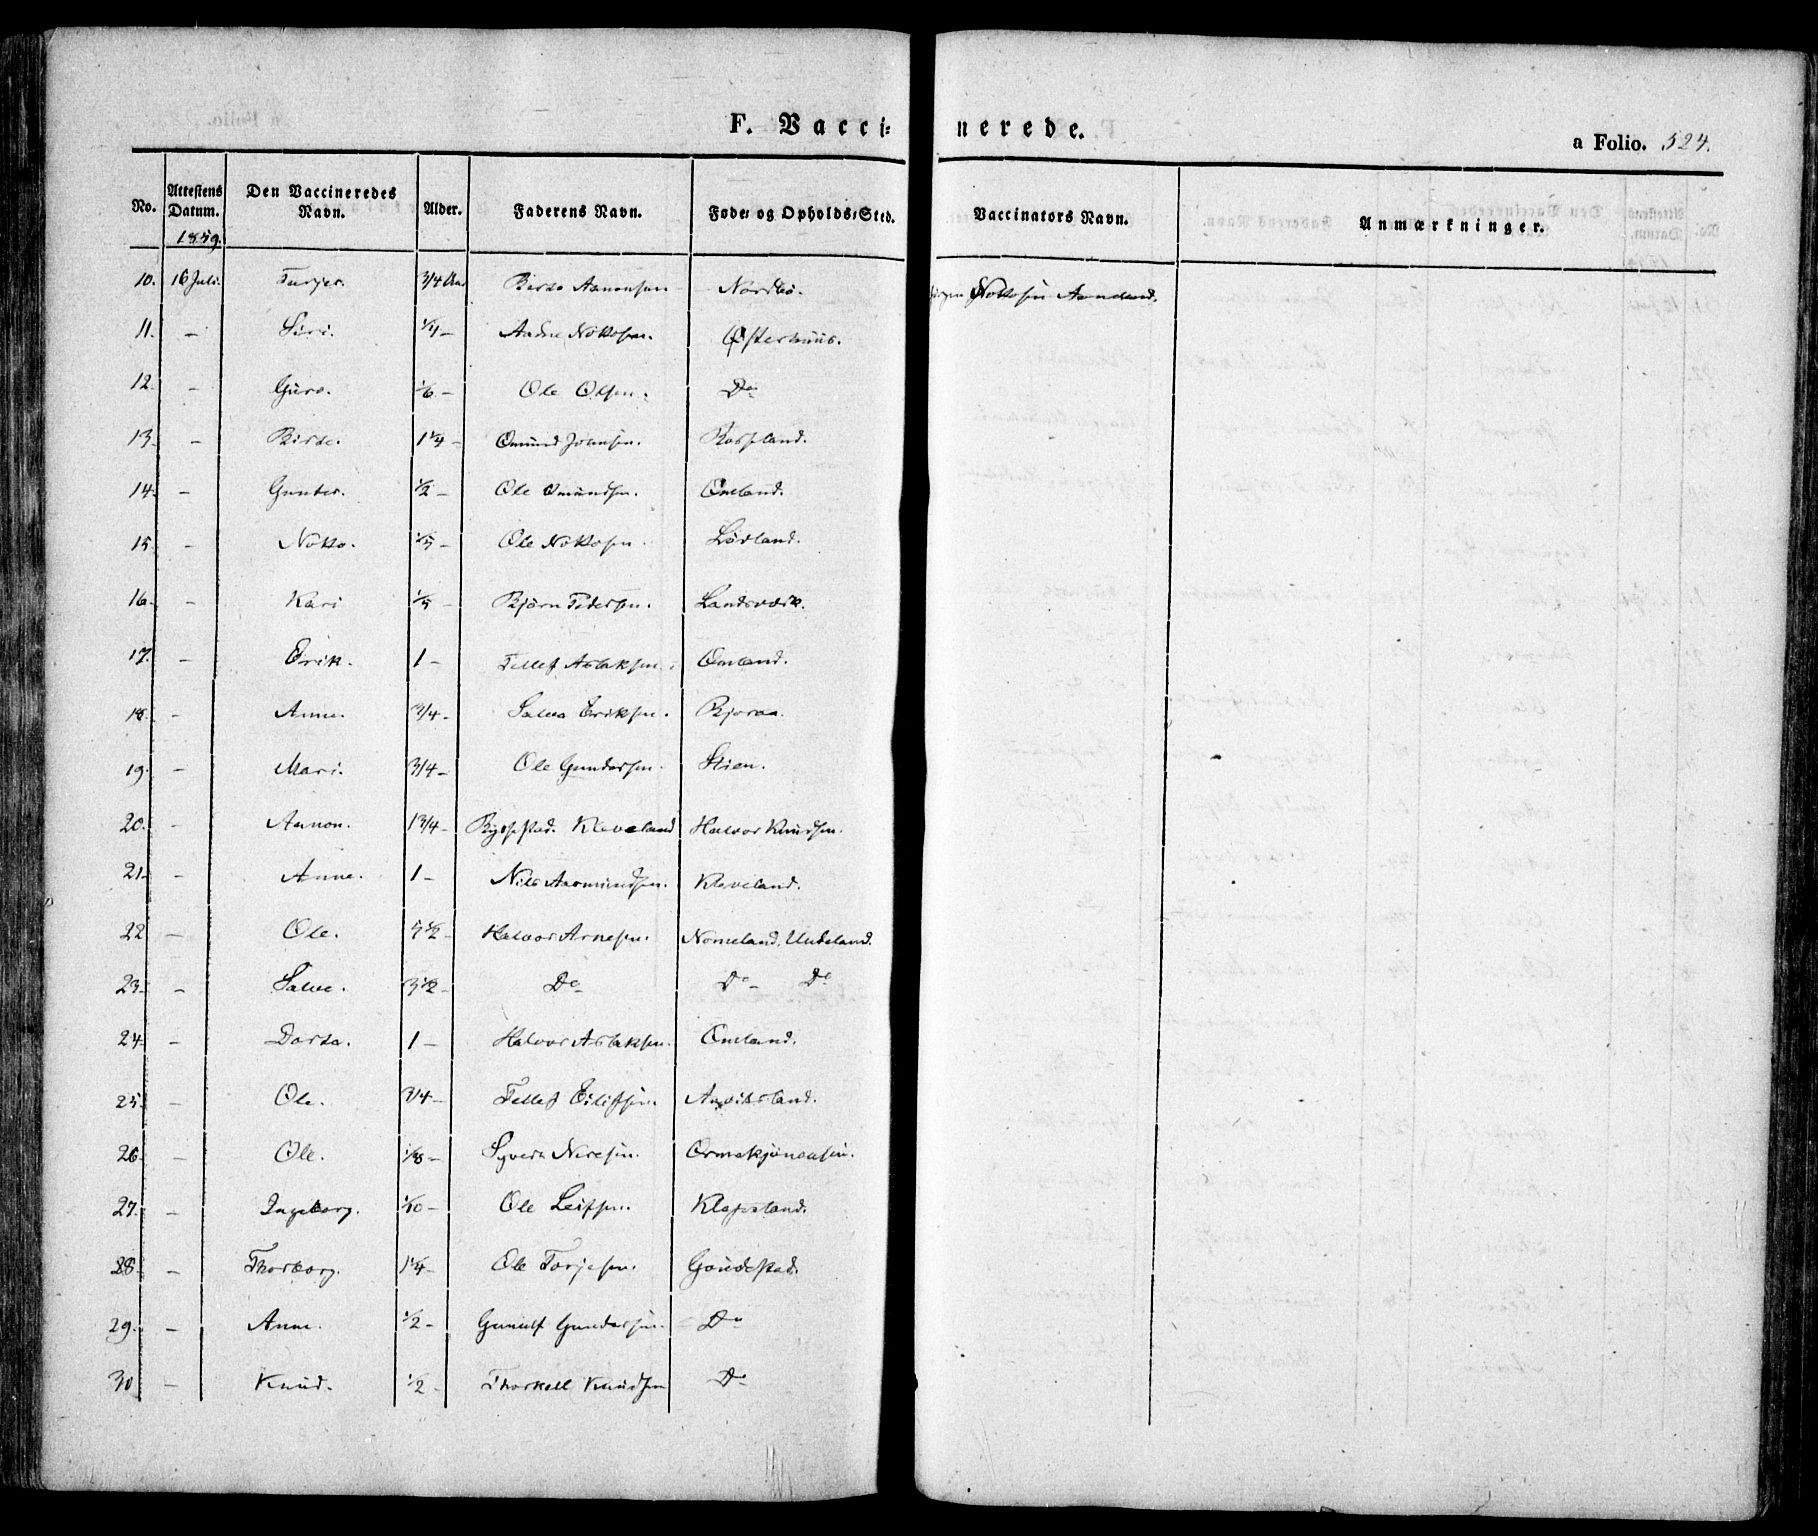 F. Vacci= nerede.
a Folio. 524.
No. Attestens Datum. Den Vaccineredes Navn. Alder. Faderens Navn. Føde= og Opholds=Sted. Vaccinators Navn. Anmærkninger.
1859.
10. 16 Juli. Tarjer. 3/4 Aar Birte Aanonsen Nordbø. Nottosen Aamland.
11. - Siri. 1/4 - Aadne Nottosen. Østerhuus.
12. - Guro. 1/6 - Ole Olsen. Do
13. - Birte. 1 1/4 - Omund Johnsen. Rosseland.
14. - Gunder. 1/2 - Ole Omundsen. Omland.
15. - Notto. 1/5 - Ole Nottosen. Lødland.
16. - Kari 1/5 - Bjørn Pedersen. Landsværk.
17. - Erik. 1 - Tellef Aslaksen. Omland.
18. - Anne. 3/4 - Salve Eriksen. Bjoraa.
19. - Mari. 3/4 - Ole Gundersen. Stien.
20. - Aanon. 1 3/4 - Bygsestad. Kleveland Halvor Knudsen.
21. - Anne. 1 - Nils Aasmundsen. Kleveland.
22 - Ole. 5 1/2 - Halvor Arnesen. Nomeland, Uvdeland.
23. - Salve. 3 1/2 - Do Do - Do
24. - Dorte. 1 - Halvor Aslaksen. Omland.
25. - Ole. 3/4 - Tellef Eilifsen. Arvitsland.
26. - Ole. 1/8 - Syvert Neresen. Ormekjønåsen.
27. - Ingeborg. 1/10 - Ole Leifsen. Klepsland.
28. - Thorborg. 1 1/4 - Ole Torjesen. Goudestad.
29. - Anne. 1/2 - Gunulf Gundersen. Do
30 - Knud. 1/2 - Thorkell Knudsen Do